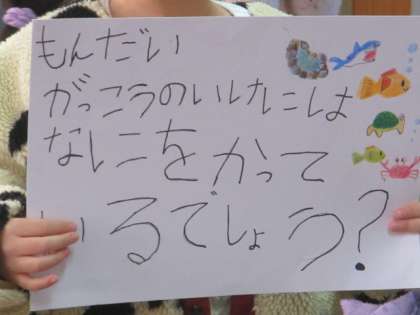 もんだい
がっこうのいけには
なにをかって
いるでしょう?